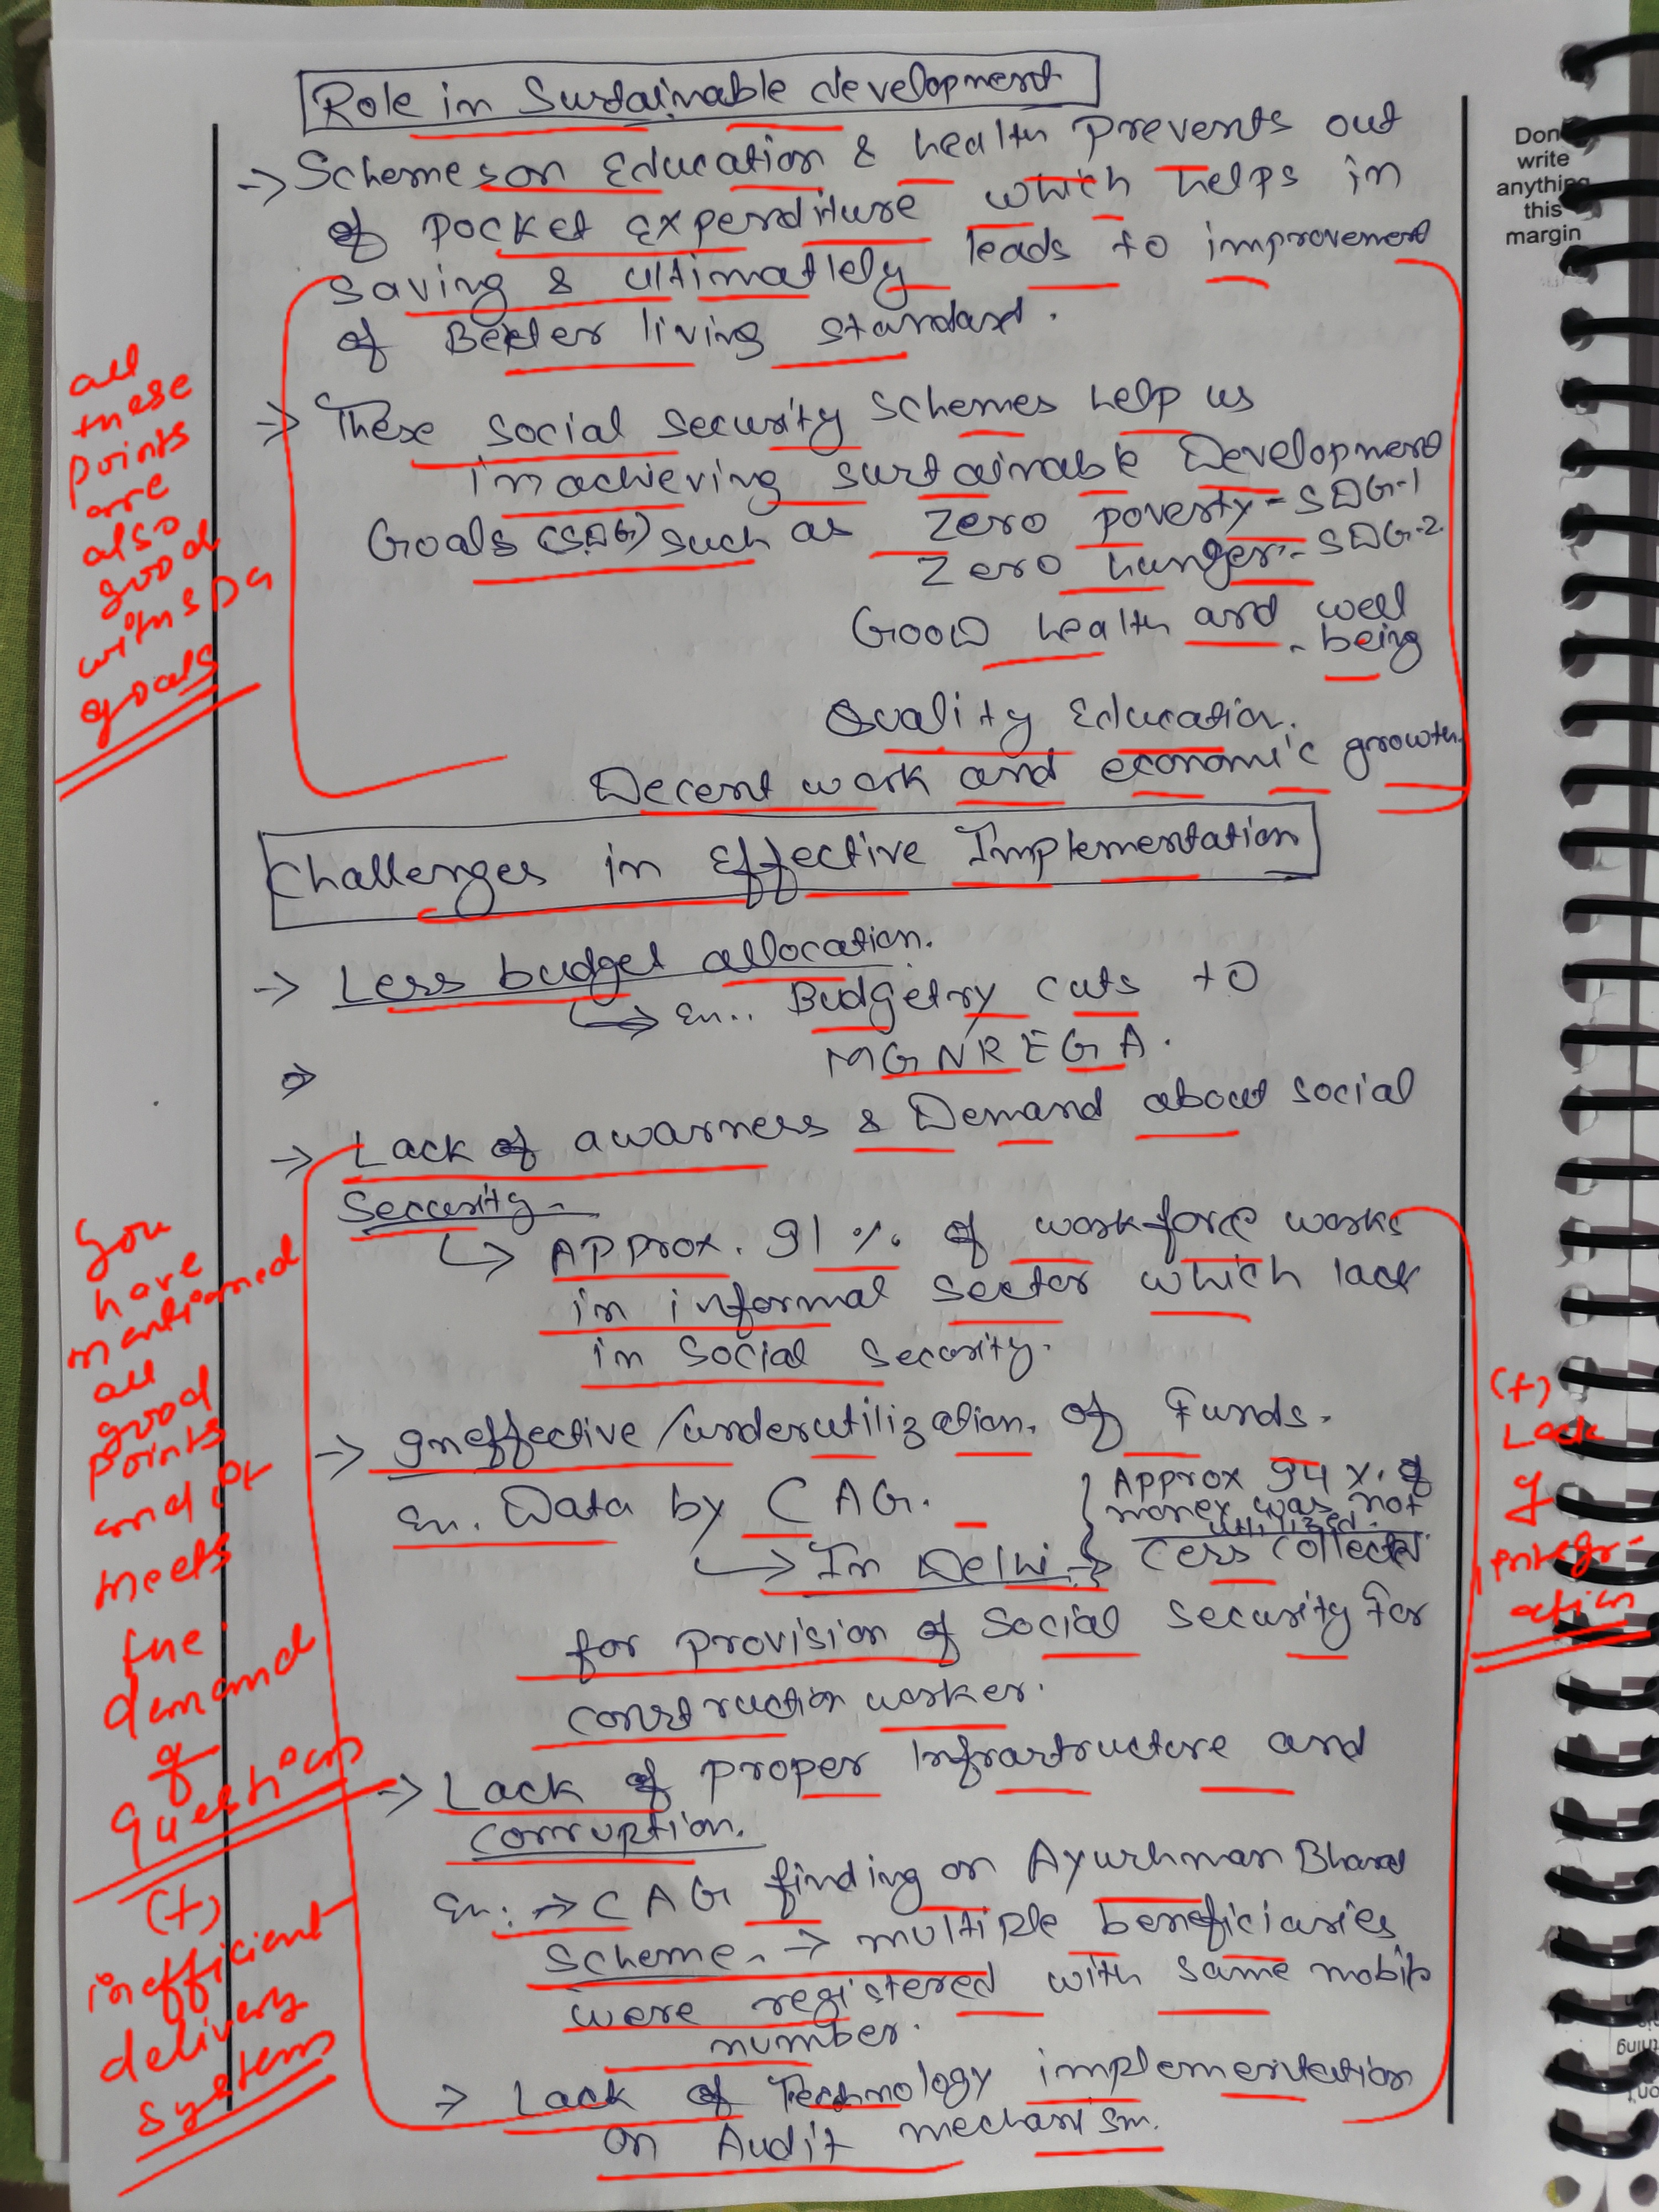 Role in Sustainable development
→ Schemes on Education & health prevents out
of pocket expenditure which helps in
saving & ultimatlely leads to improvement
of Better living standard.
→ These social security schemes help us
in achieving sustainable Development
Goals (SDG) such as Zero poverty - SDG-1
Zero hunger - SDG-2
Good health and well
being
Quality Education.
Decent work and economic growth.
all
these
points
are
also
good
with SDG
goals
Challenges in Effective Implementation
→ Less budget allocation.
↳ Ex.. Budgetry cuts to
MGNREGA.
→ Lack of awarness & Demand about social
Security.
↳ Approx. 91% of workforce works
in informal sector which lack
in social security.
→ Ineffective/underutilization of Funds.
Ex. Data by CAG.
Approx 94%. of
money was not
utilized.
↳ In Delhi → Cess collected
for provision of social security for
construction worker.
→ Lack of proper Infrastructure and
corruption.
Ex. → CAG finding on Ayushman Bharat
scheme. → multiple beneficiaries
were registered with same mobile
number.
→ Lack of Technology implementation
on Audit mechanism.
You
have
mentioned
all
good
points
and it
meets
the
demand
of
question
(+)
inefficient
delivery
system
(+)
Lack
of
integr-
ation
Don
write
anything
this
margin